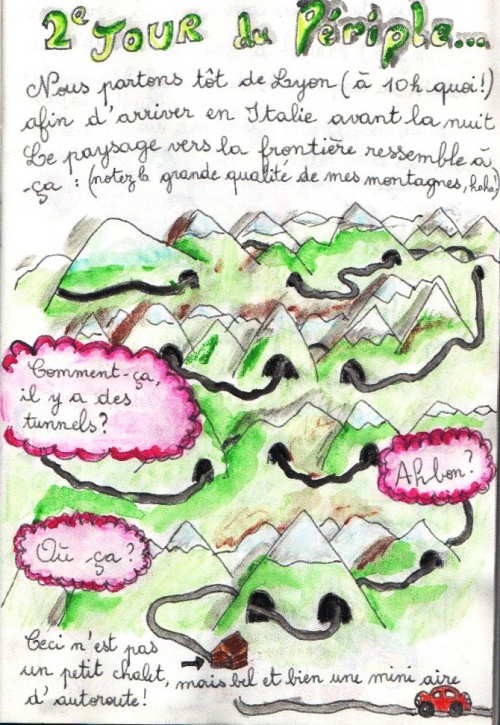 2e JOUR du Périple...
Nous partons tôt de Lyon (à 10h quoi!)
afin d'arriver en Italie avant la nuit
Le paysage vers la frontière ressemble à
-ça : (notez la grande qualité de mes montagnes, haha!)
Comment-ça,
il y a des
tunnels?
Ah bon?
Où -ça?
Ceci n'est pas
un petit chalet, mais bel et bien une mini aire
d'autoroute!